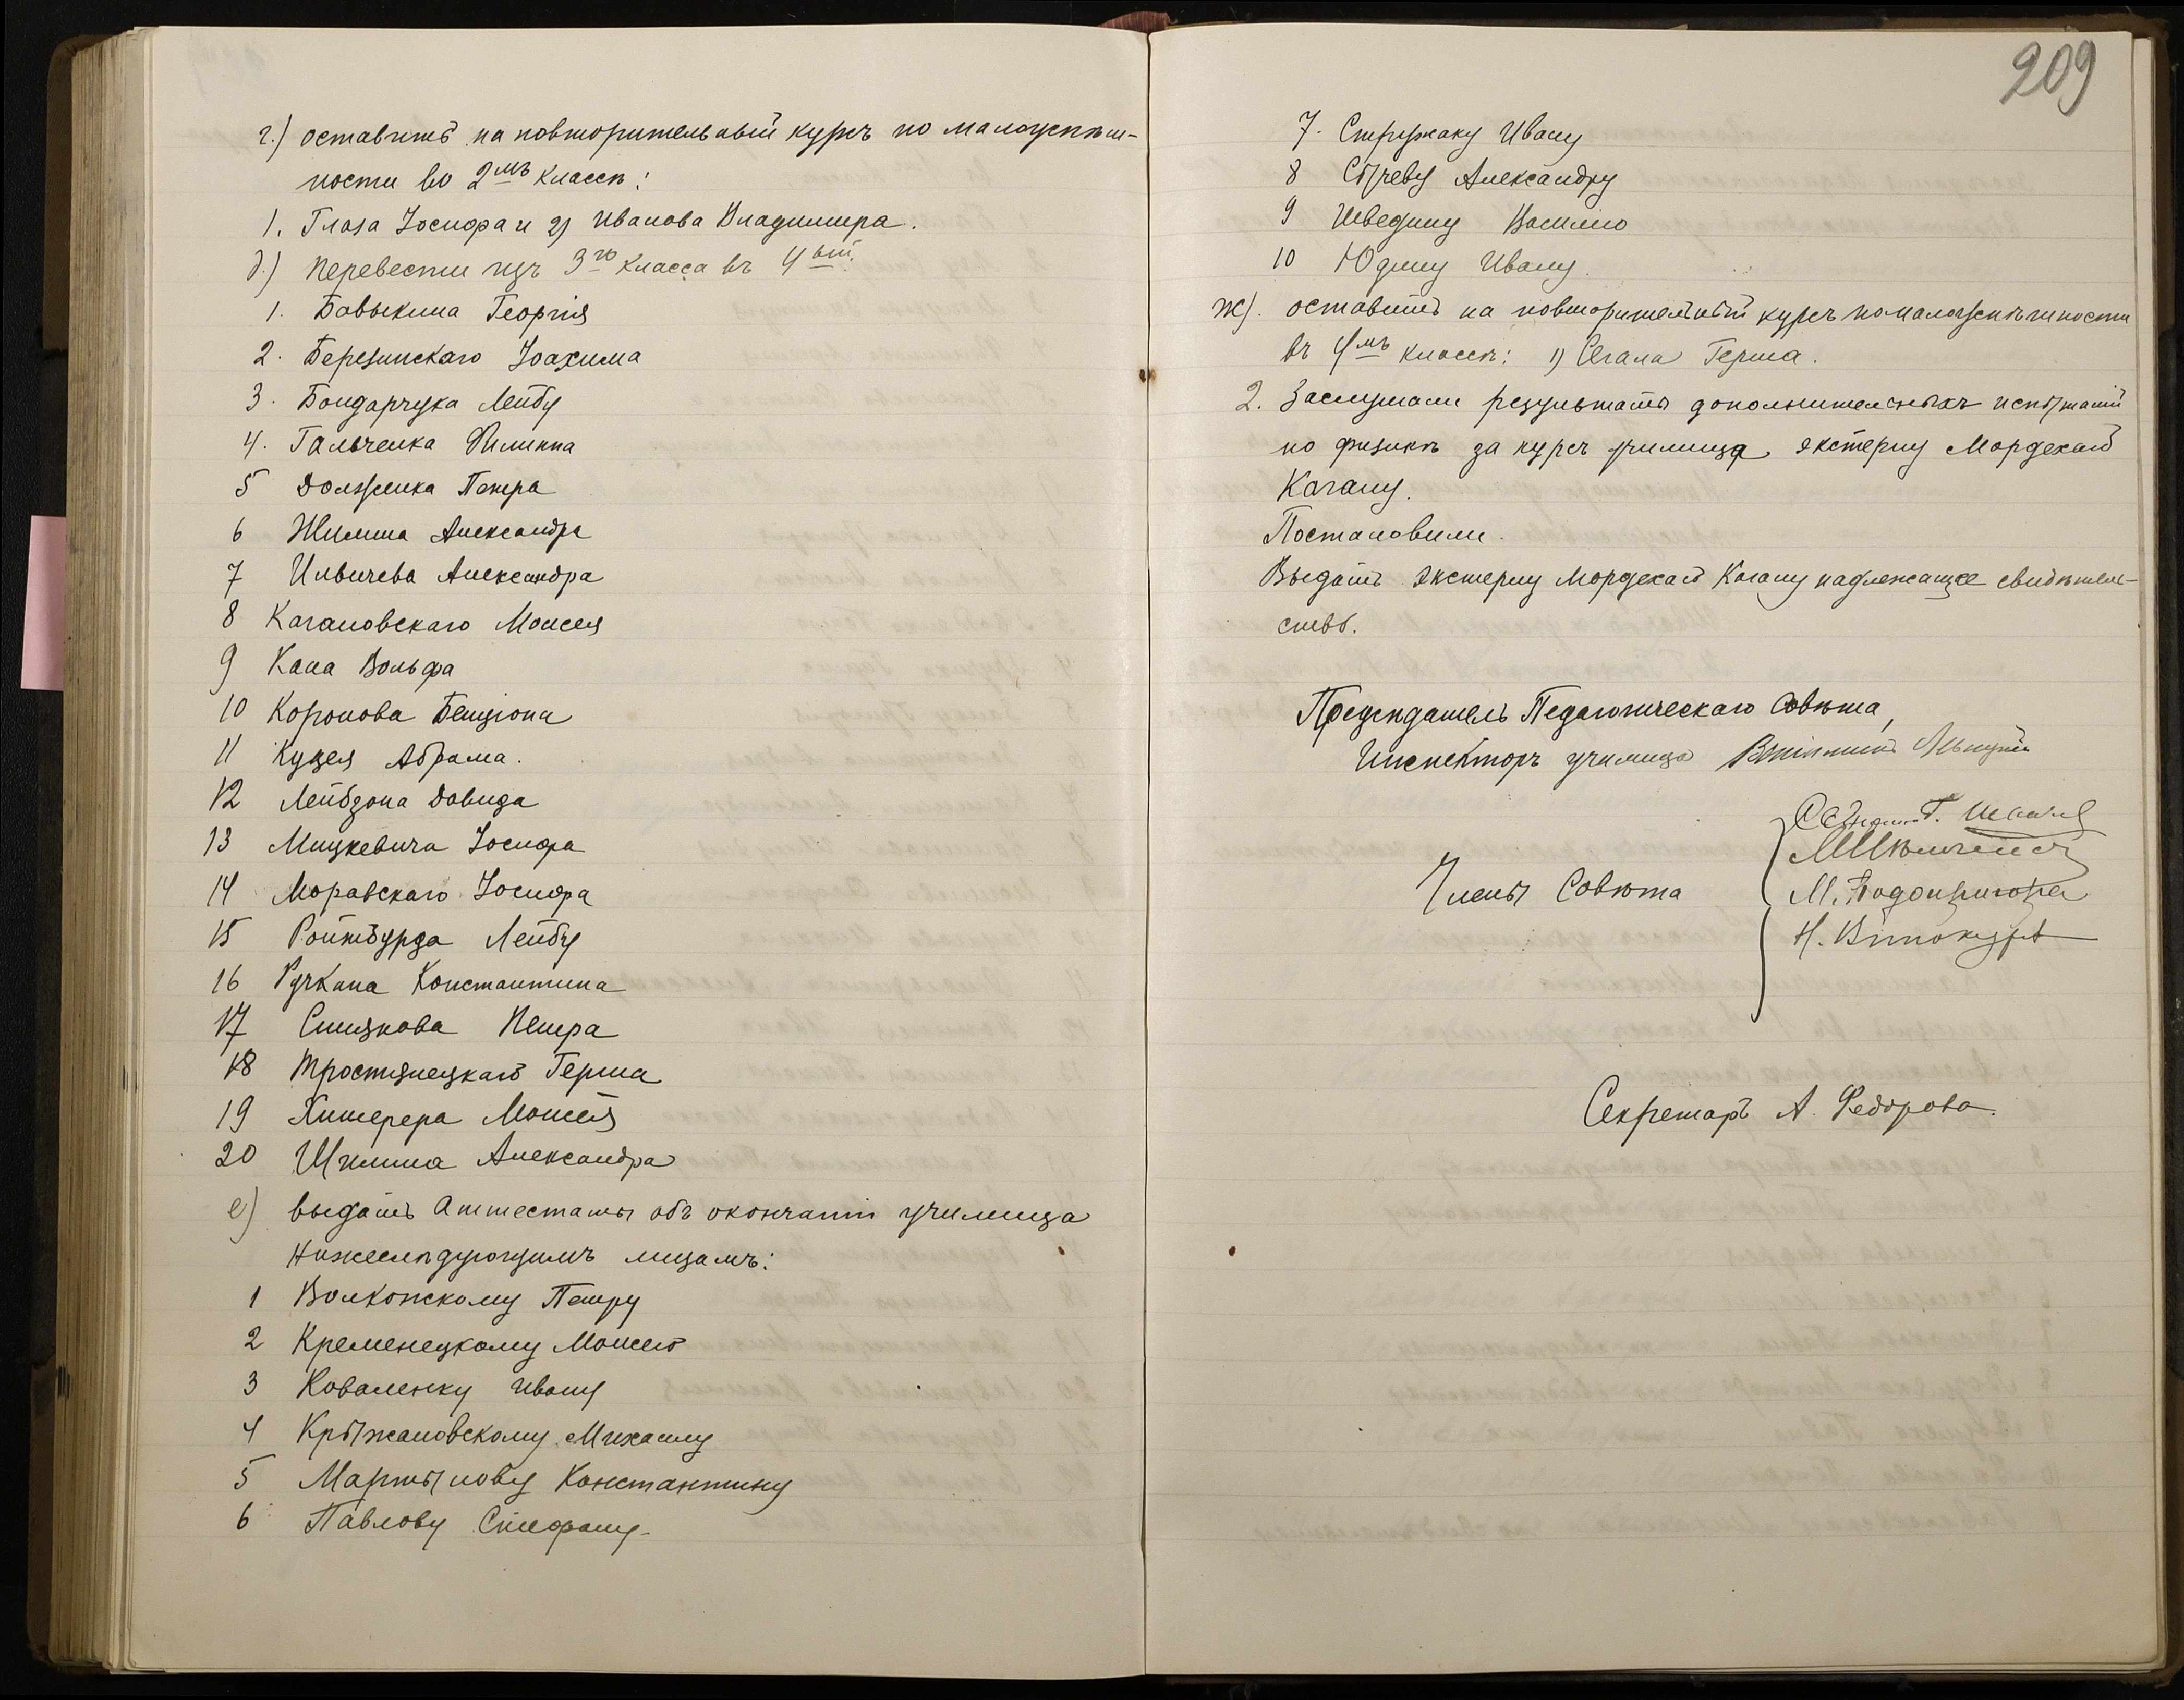 г.) оставить на повторительный курсъ по малоуспѣш-
ности во 2мъ классѣ:
1. Глаза Іосифа и 2) Иванова Владимира.
д.) перевести изъ 3го класса въ 4ый.
1. Бавыкина Георгія
2. Березинскаго Іоахима
3. Бондарчука Лейбу
4. Гальченка Филиппа
5 Долженка Петра
6 Жилина Александра
7 Ивичева Александра
8 Кагановскаго Моисея
9 Кана Вольфа
10 Коронова Бенціона
11 Куцея Абрама.
12 Лейбзона Давида
13 Мицкевича Іосифа
14 Моравскаго Іосифа
15 Ройтбурда Лейбу
16 Ручкина Константина
17 Симзкова Петра
18 Тростянецкаго Герша
19 Химерера Моисея
20 Шилина Александра
е) выдать аттестаты объ окончаніи училища
нижеслѣдующимъ лицамъ:
1 Волконскому Петру
2 Кременецкому Моисею
3 Коваленку Ивану
4 Крыжановскому Михаилу
5 Мартынову Константину
6 Павлову Стефану
209
7. Стружаку Ивану
8 Сычеву Александру
9 Шведину Василію
10 Юдину Ивану.
ж). оставить на повторительный курсъ по малоуспѣшности
въ 4мъ классѣ: 1) Сегала Герша.
2. Заслушали результаты дополнительныхъ испытаній
по физикѣ за курсъ училища экстерну Мордехаю
Кагану.
Постановили.
Выдать экстерну Мордехаю Кагану надлежащее свидѣтель-
ство.
Предсѣдатель Педагогическаго Совѣта,
Инспекторъ училища
Члены Совѣта
М. Подопригора
Н. Винокуръ
Секретарь А. Федорова.